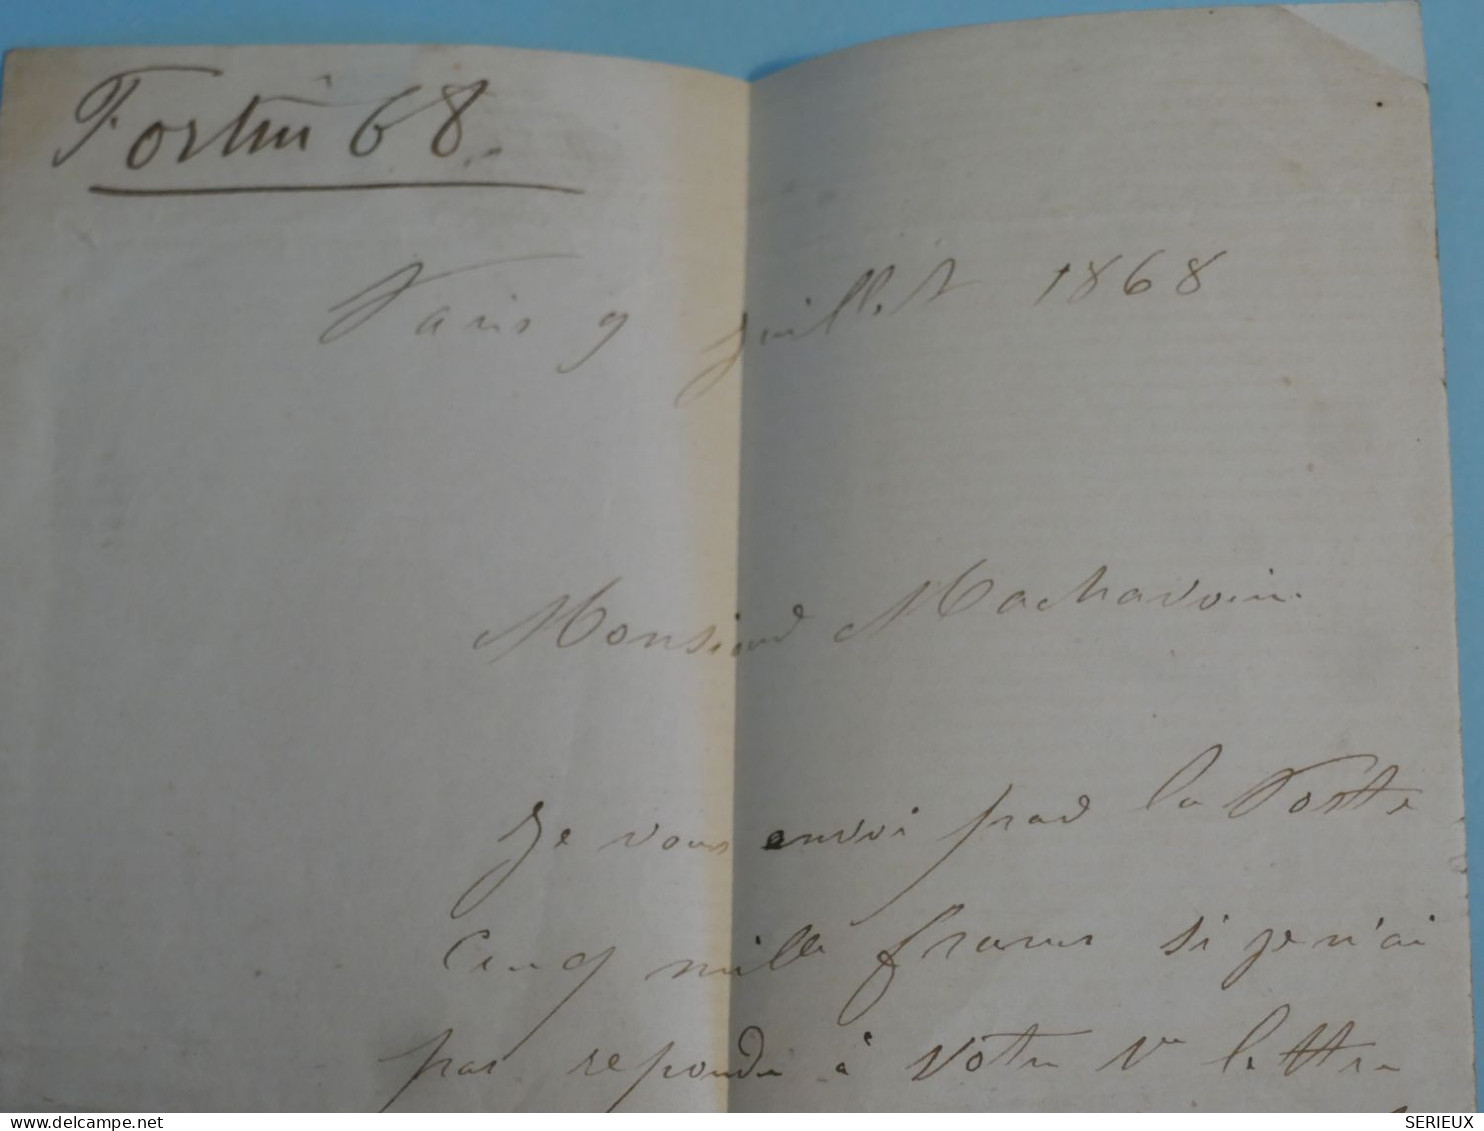 Fortin 68.
Paris 9 juillet 1868
Monsieur Machavoin
Je vous envoi par la Poste
Cinq mille francs si je n'ai
pas repondu à votre 1re lettre
SERIEUX